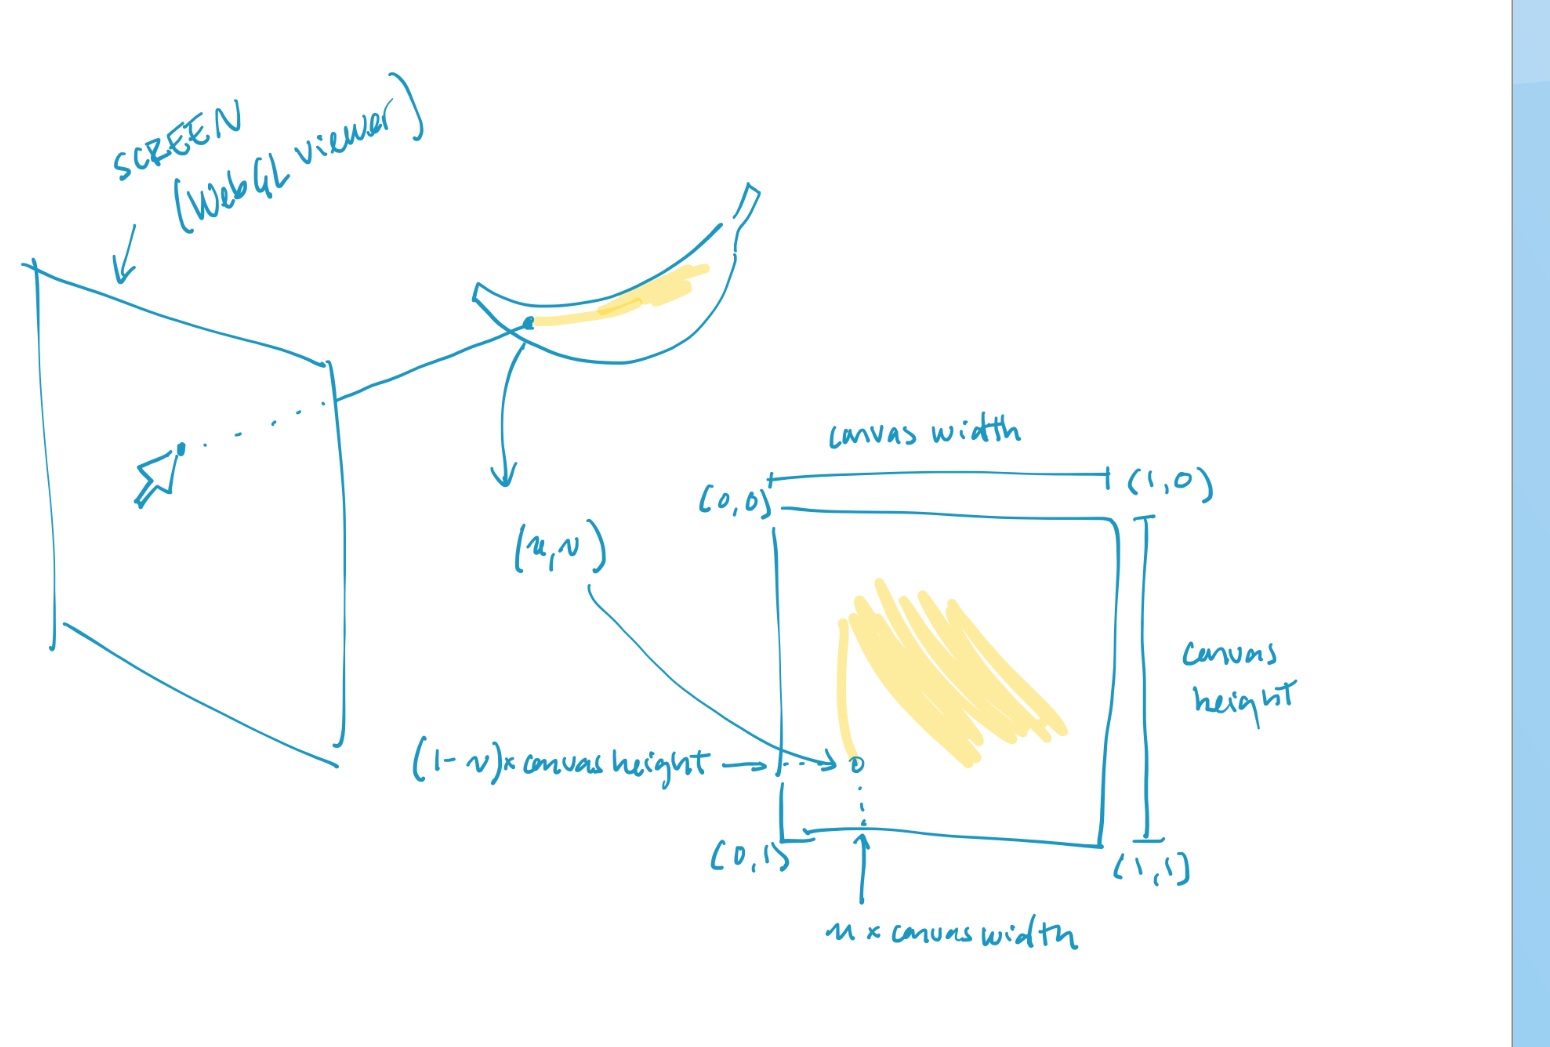 SCREEN
(WebGL viewer)
canvas width
(0,0)
(1,0)
(u,v)
canvas
height
(1-v)× canvas height
(0,1)
(1,1)
u × canvas width